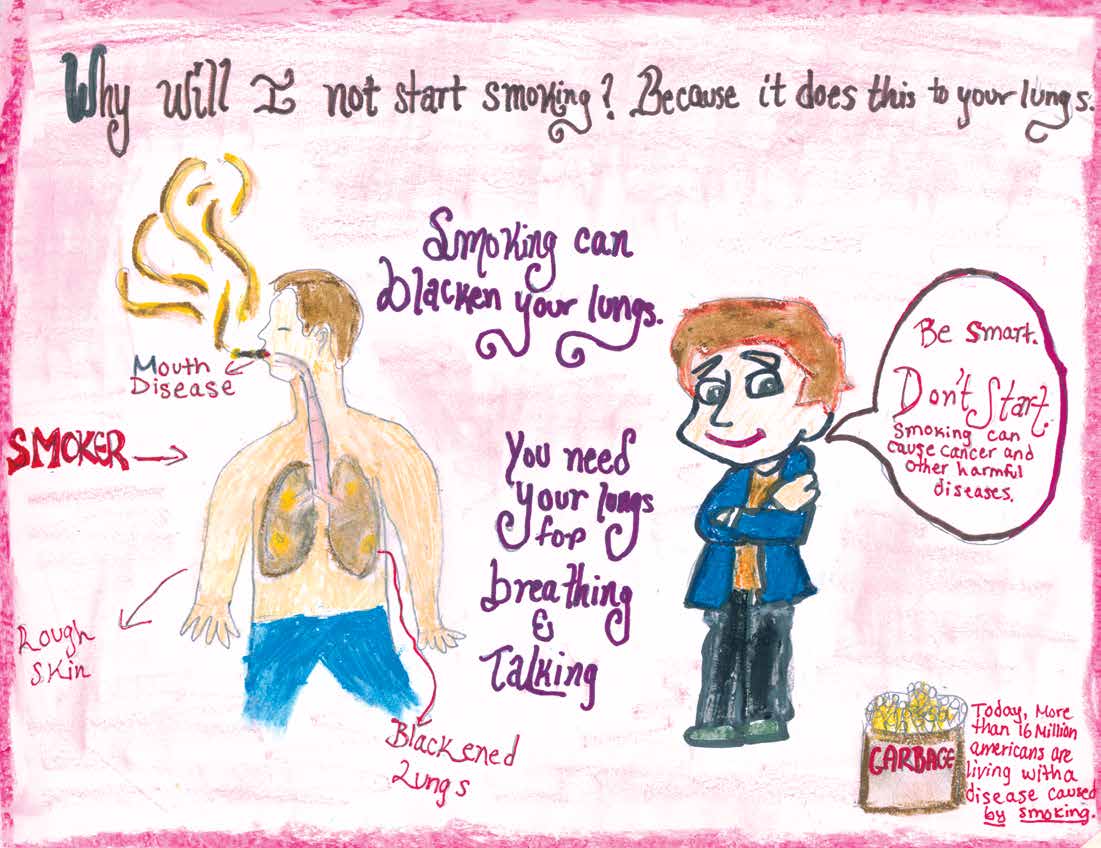 Why will I not start smoking? Because it does this to your lungs.
Smoking can
blacken your lungs.
Mouth
Disease
SMOKER
Rough
Skin
Blackened
Lungs
You need
your lungs
for
breathing
&
Talking
Be smart.
Don't Start.
Smoking can
cause cancer and
other harmful
diseases.
GARBAGE
Today, More
than 16 Million
americans are
living with a
disease caused
by smoking.